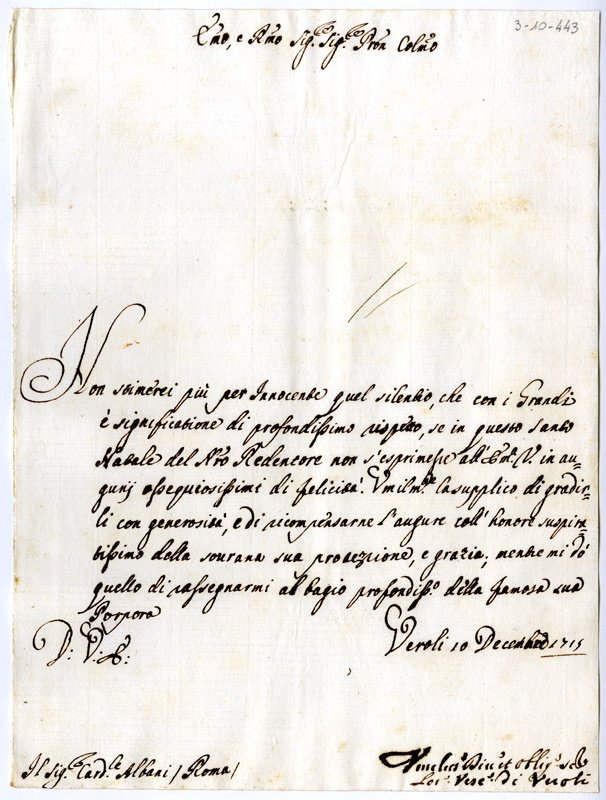 3-10-443
Emo, e Rmo Sig.re Sig.re Pron Colmo
Non stimerei più per Innocente quel silentio, che con i Grandi
è significatione di profondissimo rispetto, se in questo Santo
Natale del Nr̃o Redentore non s'esprimesse all'Em.ᵃ V. in au-
gurij ossequiosissimi di felicità. Vmilm.te la supplico di gradir-
li con generosità, e di ricompensarne l'augure coll'honore suspira-
tissimo della sourana sua protezzione, e grazia; mentre mi dò
quello di rassegnarmi al bagio profondiss.o della famosa sua
Porpora
D: V: E:
Veroli 10 Decembre 1715
Il Sig.re Card.le Albani / Roma /
Vmiliss.o Diu.o et Obblig.o
Vesc.o di Veroli